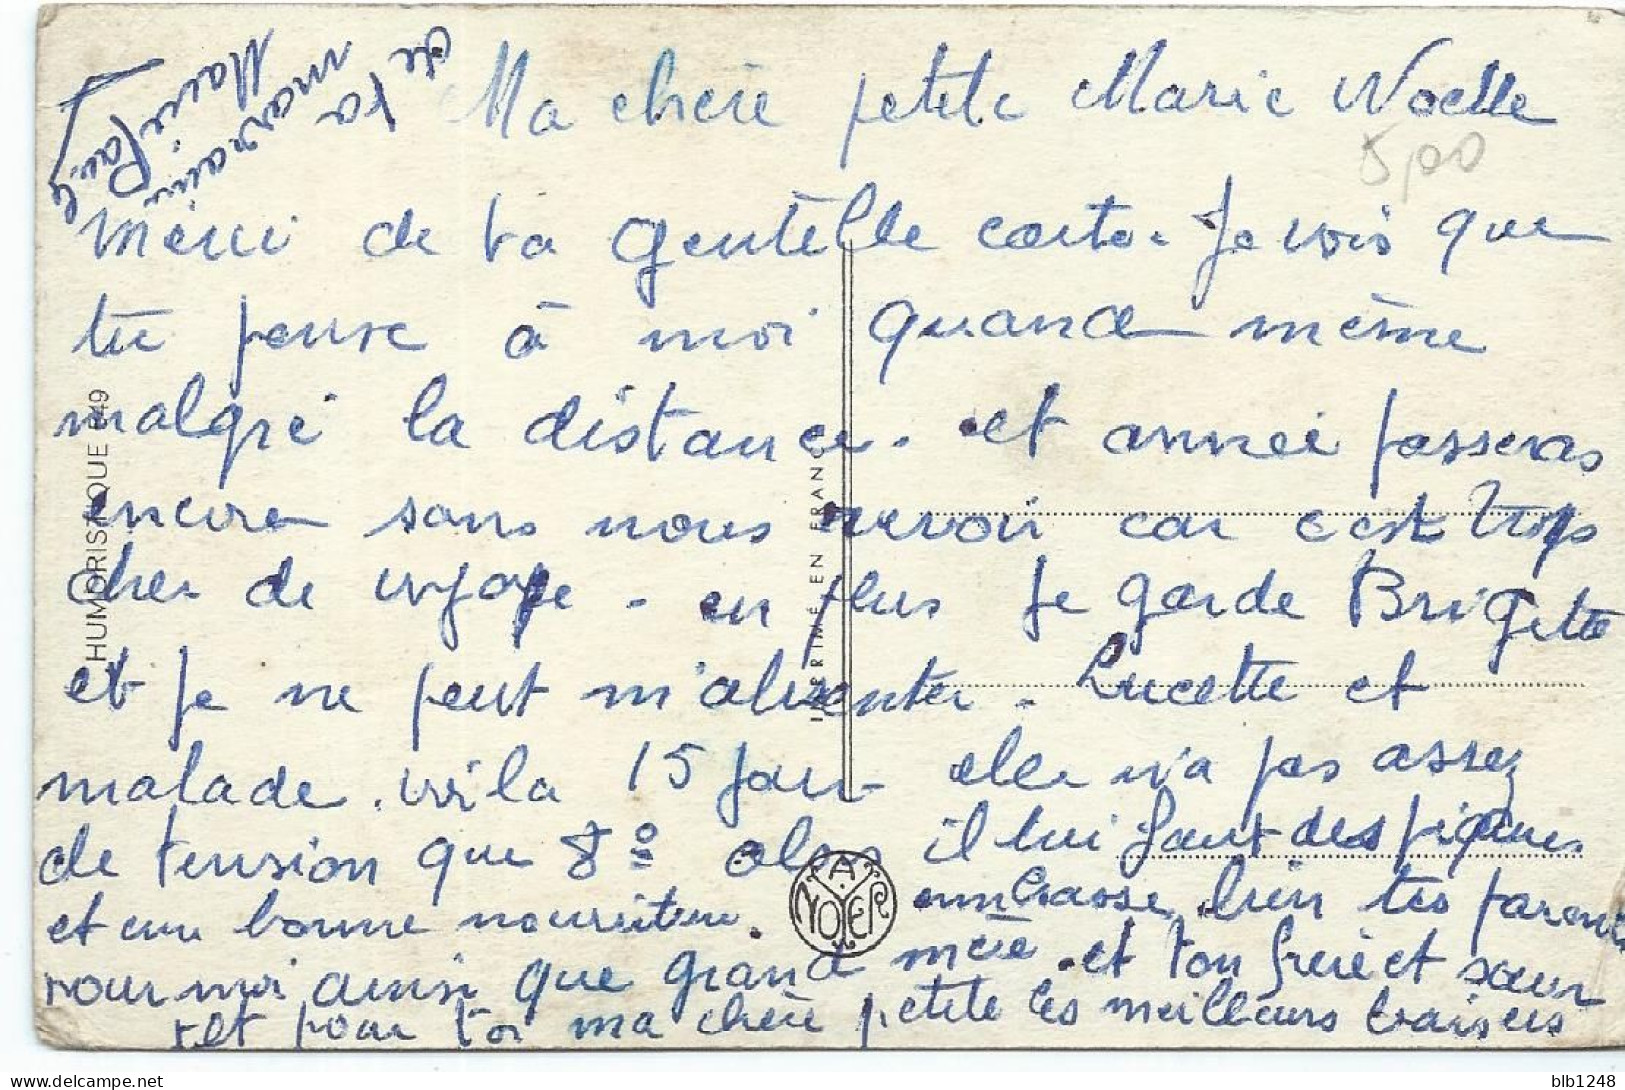 Ma chère petite Marie Noelle
5,00
merci de ta gentèlle carte. Je vois que
tu pense à moi quand même
malgré la distance. et année passeras
encore sans nous revoir car c'est trop
cher de voyage - en plus je garde Brigette
et je ne peut m'absenter. Lucette et
malade. voila 15 jour elle n'a pas assez
de tension que 8º alors il lui faut des piqures
et une bonne nourriture. embrasse bien tes parents
pour moi ainsi que grand mère. et ton frère et sœur
et pour toi ma chère petite les meilleurs baisers
de ta marraine
Marie Paule
HUMORISTIQUE 849
IMPRIMÉ EN FRANCE
A. NOYER
delcampe.net
blb1248